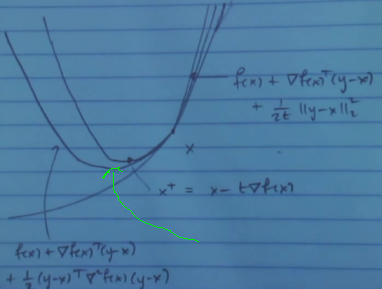 f(x) + ∇f(x)ᵀ(y-x)
+ 1/2t ||y-x||₂²
x
x⁺ = x - t∇f(x)
f(x) + ∇f(x)ᵀ(y-x)
+ 1/2 (y-x)ᵀ∇²f(x)(y-x)